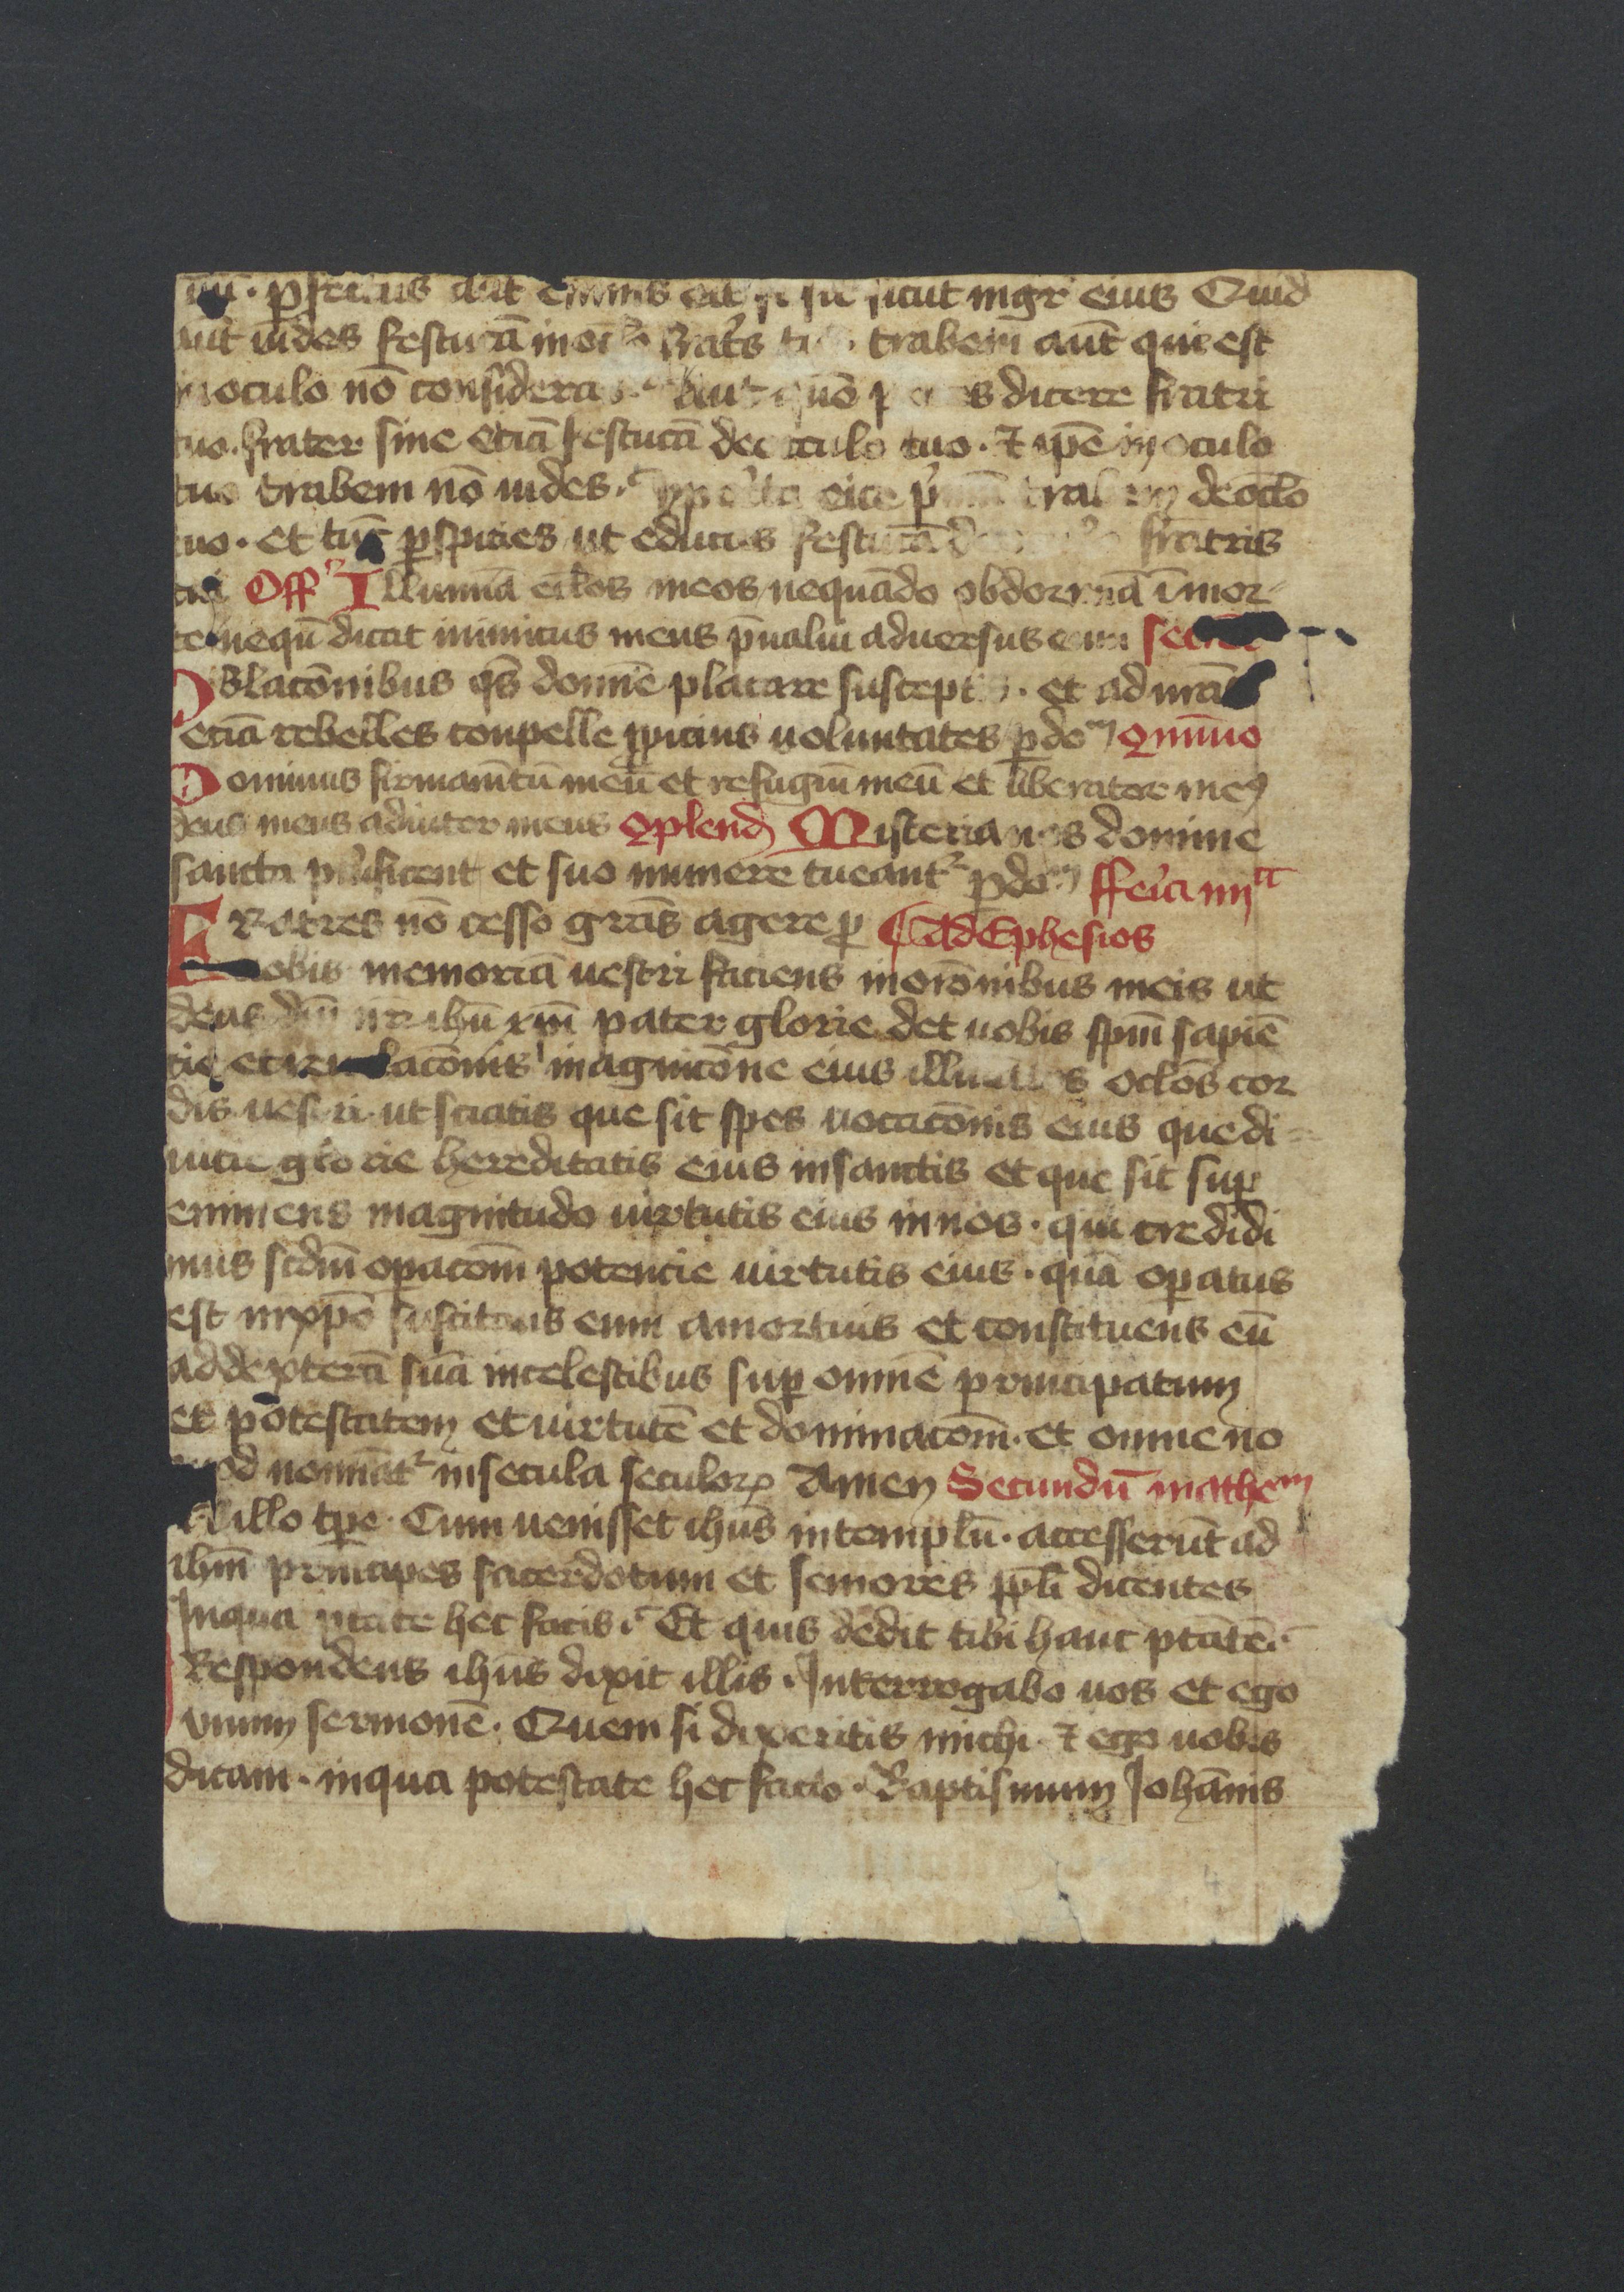 p̱fectus aut̄ om̄nis erit si sit sicut mgr̄ eius Quid
aut̄ uides festucā in oclo frat̄s tui · trabem aut̄ que est
in oculo nō consideras · Aut quō potes dicere fratri
tuo · frater sine eiciā festucā de oculo tuo · ⁊ ip̄e in oculo
tuo trabem nō uides · ypocrita eice p̄mū trabem de oclo
tuo · et tūc p̱spicies ut educas festucā de oculo fratris
tui Off Illumīa oclos meos nequādo obdormiā ī mor-
te nequā dicat inimicus meus p̄ualui aduersus eum secret
Oblacōnibus qs̄ domīe placare susceptis · et ad nrā
eciā rebelles conpelle ꝓpicius uoluntates p̱ do Qmūio
Dominus firmamn̄tū meū et refugiū meū et liberator meꝰ
deus meus adiutor meus Qplend Misteria nos domine
sancta purificent et suo munere tueantr̄ p̱ do ffe͛ia iiij ta
Fratres nō cesso grās agere p̱ Ad Ephesios
uobis memoriā uestri faciens in orōnibus meis ut
deus dn̄i nr̄i ih̄u xp̄i pater glorie det uobis sp̄m sapiē
cie et reuelacōnis in agnicōne eius illuminatos oclōs cor
dis uestri ut sciatis que sit spes uocacōnis eius que di-
uicie glorie hereditatis eius in sanctis et que sit sup̱
eminens magnitudo uirtutis eius in nos · qui credidi
mus scdm̄ op̱acōm̄ potencie uirtutis eius · quā op̱atus
est in xp̄o suscitans eum a mortuis et constituens eū
ad dexterā suā in celestibus sup̱ omnē principatum
et potestatem et uirtutē et dominacōm̄ · et omne no
quod nomīatr̄ in secula seculoꝝ Amen Secundū mathem
In illo tp̱e · Cum uenisset ih̄us in templū · accesserūt ad
ih̄m principes sacerdotum et seniores ppl̄i dicentes
In qua ptate hec facis · Et quis dedit tibi hanc ptātē ·
Respondens ih̄us dixit illis · Interrogabo uos et ego
vnum sermonē · Quem si dixeritis michi · ⁊ ego uobis
dicam · in qua potestate hec facio · Baptismum Johānis